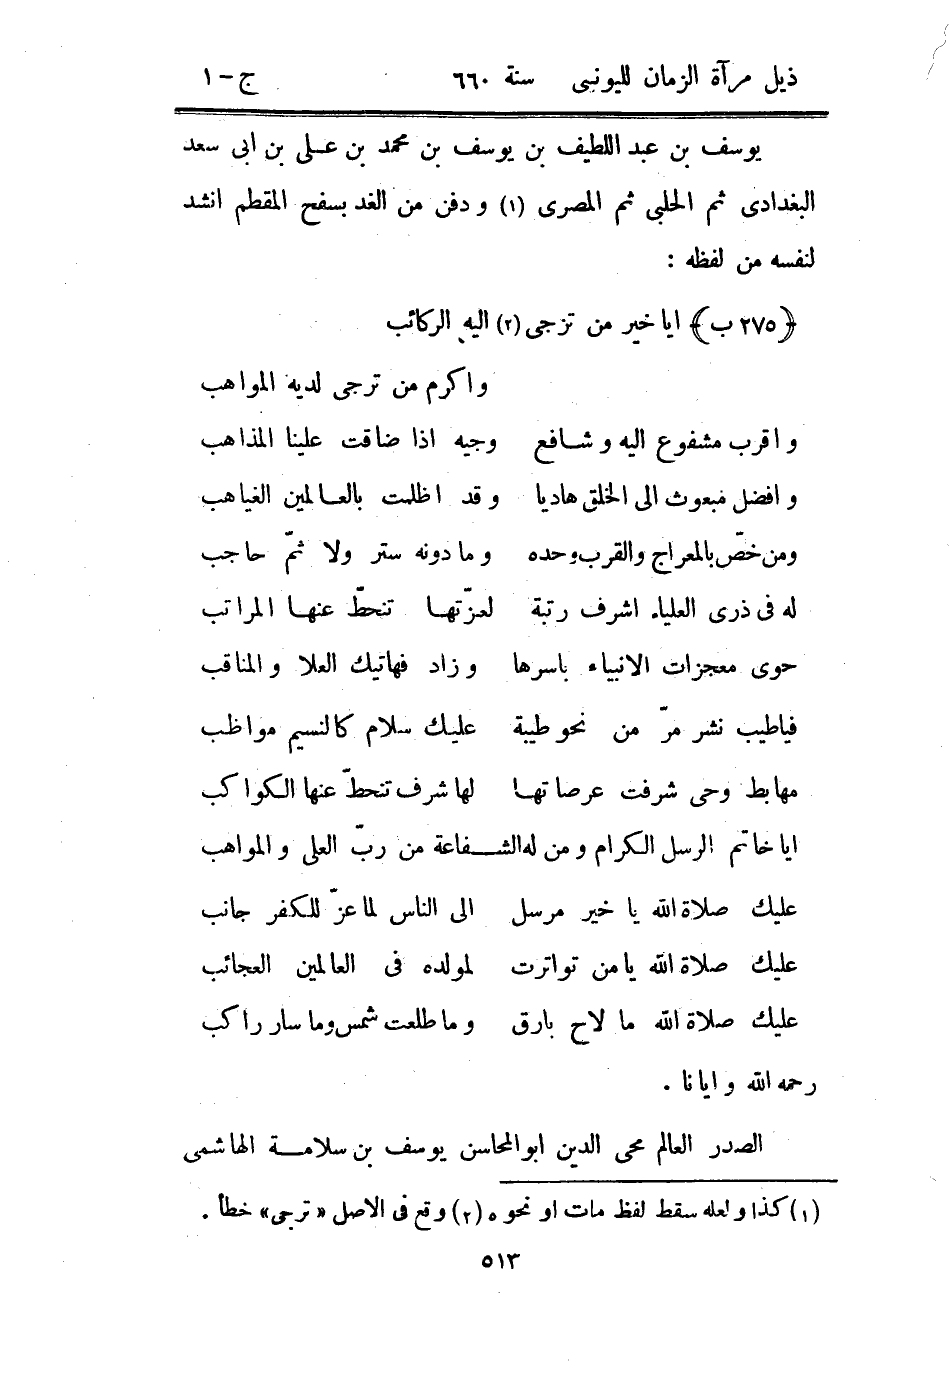 ذيل مرآة الزمان لليونينى سنة ٦٦٠ ج-١
يوسف بن عبد اللطيف بن يوسف بن محمد بن على بن ابى سعد
البغدادى ثم الحلبى ثم المصرى (١) و دفن من الغد بسفح المقطم انشد
لنفسه من لفظه :
﴿٢٧٥ ب﴾ ايا خير من تزجى (٢) اليه الركائب
و اكرم من ترجى لديه المواهب
و اقرب مشفوع اليه و شافع وجيه اذا ضاقت علينا المذاهب
و افضل مبعوث الى الخلق هاديا و قد اظلمت بالعالمين الغياهب
ومن خصّ بالمعراج والقرب وحده و ما دونه ستر ولا ثمّ حاجب
له فى ذرى العلياء اشرف رتبة لعزّتها تنحطّ عنها المراتب
حوى معجزات الانبياء باسرها و زاد فهاتيك العلا و المناقب
فياطيب نشر مرّ من نحو طيبة عليك سلام كالنسيم مواظب
مهابط وحى شرفت عرصاتها لها شرف تنحطّ عنها الكواكب
ايا خاتم الرسل الكرام و من له الشفاعة من ربّ العلى و المواهب
عليك صلاة الله يا خير مرسل الى الناس لما عزّ للكفر جانب
عليك صلاة الله يا من تواترت لمولده فى العالمين العجائب
عليك صلاة الله ما لاح بارق و ما طلعت شمس وما سار راكب
رحمه الله و ايانا .
الصدر العالم محى الدين ابو المحاسن يوسف بن سلامة الهاشمى
(١) كذا و لعله سقط لفظ مات او نحوه (٢) وقع فى الاصل « ترجى » خطأ .
٥١٣